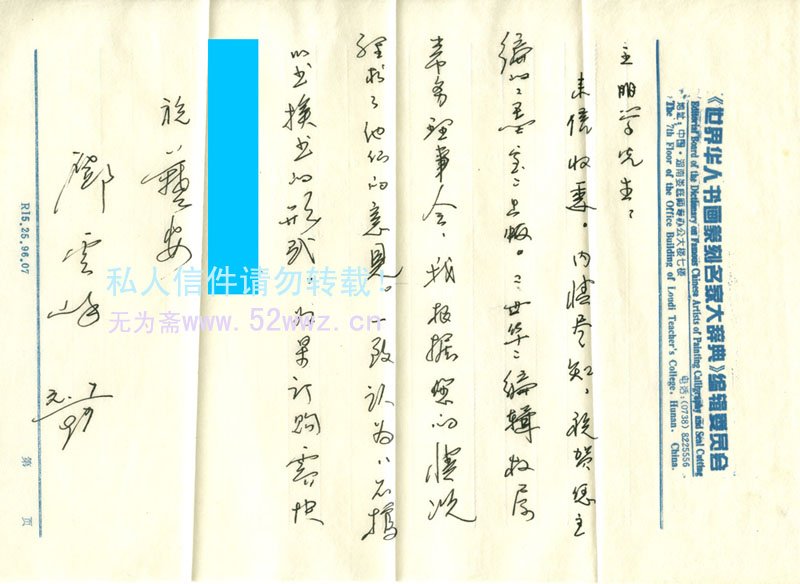 《世界华人书画篆刻名家大辞典》编辑委员会
Editorial Board of the Dictionary on Famous Chinese Artists of Painting Calligraphy and Seal Cutting
地址:中国·湖南娄底师专办公大楼七楼 电话:(0738) 8225556
The 7th Floor of the Office Building of Loudi Teacher's College, Hunan, China.
主明学先生:
来信收悉。内情尽知,祝贺您主
编的《墨宝》出版。《世华》编辑
常务理事会,我根据您的情况
他们的意见,一致认为,
以书换书的形式。如果订购需快
祝
艺安
邓云峰
元.7
97
R15.25.96.07
第 页
私人信件请勿转载!
无为斋www.52wwz.cn